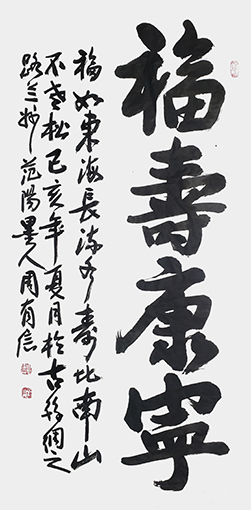 福壽康寧
福如東海長流水壽比南山
不老松己亥年夏月於古絲綢之
路兰州范陽墨人周有信